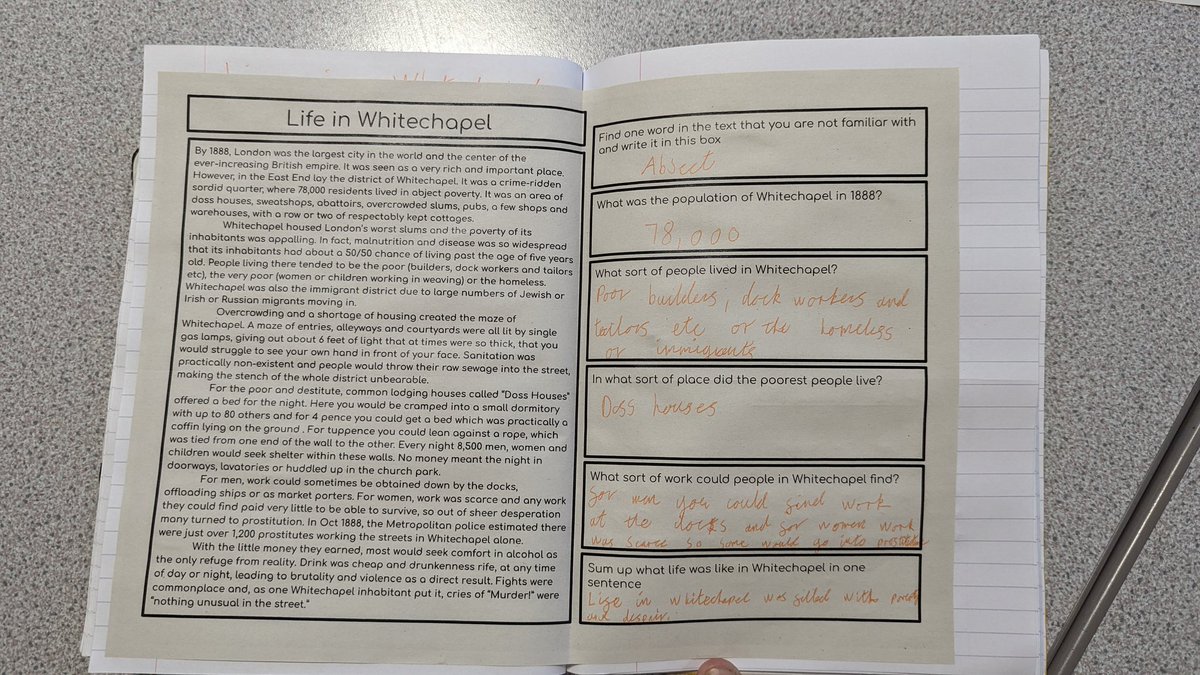 Life in Whitechapel
By 1888, London was the largest city in the world and the center of the
ever-increasing British empire. It was seen as a very rich and important place.
However, in the East End lay the district of Whitechapel. It was a crime-ridden
sordid quarter, where 78,000 residents lived in abject poverty. It was an area of
doss houses, sweatshops, abattoirs, overcrowded slums, pubs, a few shops and
warehouses, with a row or two of respectably kept cottages.
Whitechapel housed London's worst slums and the poverty of its
inhabitants was appalling. In fact, malnutrition and disease was so widespread
that its inhabitants had about a 50/50 chance of living past the age of five years
old. People living there tended to be the poor (builders, dock workers and tailors
etc), the very poor (women or children working in weaving) or the homeless.
Whitechapel was also the immigrant district due to large numbers of Jewish or
Irish or Russian migrants moving in.
Overcrowding and a shortage of housing created the maze of
Whitechapel. A maze of entries, alleyways and courtyards were all lit by single
gas lamps, giving out about 6 feet of light that at times were so thick, that you
would struggle to see your own hand in front of your face. Sanitation was
practically non-existent and people would throw their raw sewage into the street,
making the stench of the whole district unbearable.
For the poor and destitute, common lodging houses called "Doss Houses"
offered a bed for the night. Here you would be cramped into a small dormitory
with up to 80 others and for 4 pence you could get a bed which was practically a
coffin lying on the ground . For tuppence you could lean against a rope, which
was tied from one end of the wall to the other. Every night 8,500 men, women and
children would seek shelter within these walls. No money meant the night in
doorways, lavatories or huddled up in the church park.
For men, work could sometimes be obtained down by the docks,
offloading ships or as market porters. For women, work was scarce and any work
they could find paid very little to be able to survive, so out of sheer desperation
many turned to prostitution. In Oct 1888, the Metropolitan police estimated there
were just over 1,200 prostitutes working the streets in Whitechapel alone.
With the little money they earned, most would seek comfort in alcohol as
the only refuge from reality. Drink was cheap and drunkenness rife, at any time
of day or night, leading to brutality and violence as a direct result. Fights were
commonplace and, as one Whitechapel inhabitant put it, cries of "Murder!" were
"nothing unusual in the street."
Find one word in the text that you are not familiar with
and write it in this box
Abject
What was the population of Whitechapel in 1888?
78,000
What sort of people lived in Whitechapel?
Poor builders, dock workers and
tailors etc or the homeless
or immigrants
In what sort of place did the poorest people live?
Doss houses
What sort of work could people in Whitechapel find?
for men you could find work
at the docks and for women work
was scarce so some would go into prostitution
Sum up what life was like in Whitechapel in one
sentence
Life in whitechapel was filled with poverty
and despair.